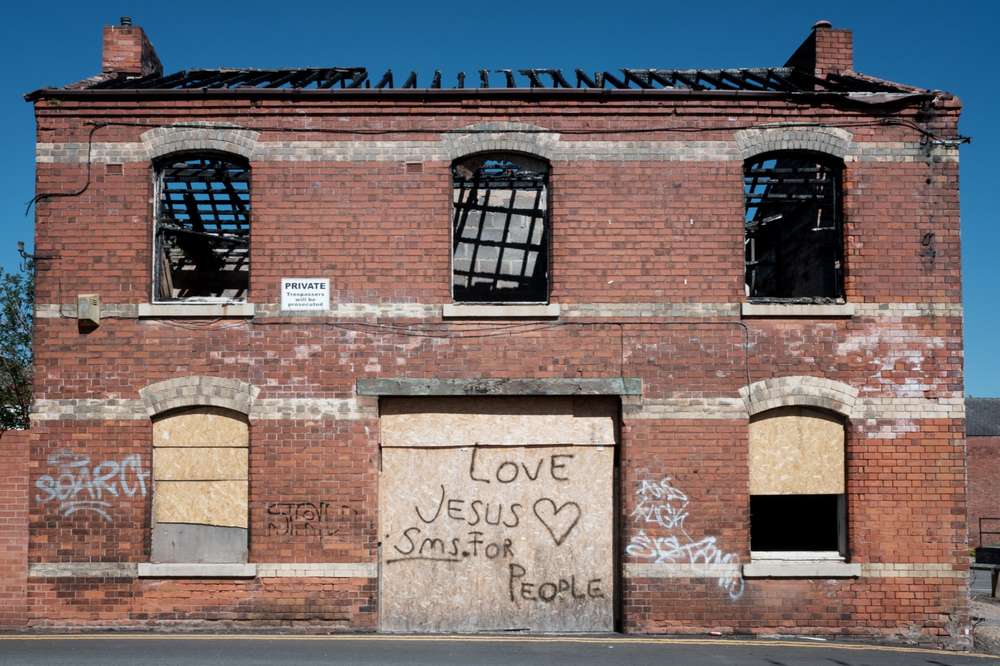 PRIVATE
Trespassers
will be
prosecuted
LOVE
JESUS
Sms. FOR
PEOPLE
SEARCH